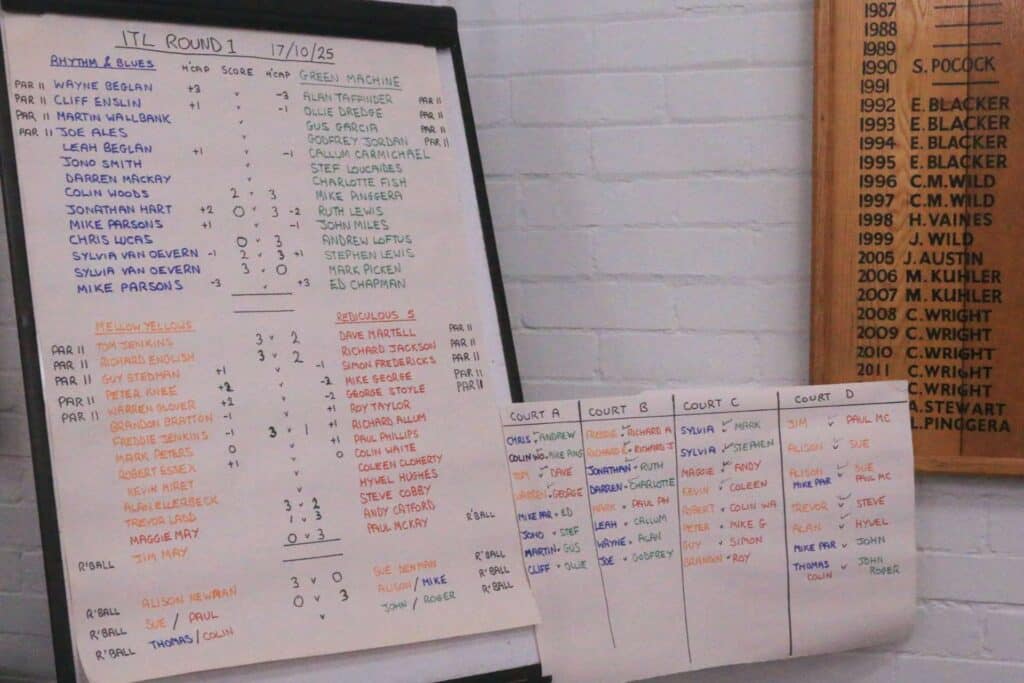 ITL ROUND 1 17/10/25
RHYTHM & BLUES H'CAP SCORE H'CAP GREEN MACHINE
PAR 11 WAYNE BEGLAN +3 v -3 ALAN TAFFINDER PAR 11
PAR 11 CLIFF ENSLIN +1 v -1 OLLIE DREDGE PAR 11
PAR 11 MARTIN WALLBANK v GUS GARCIA PAR 11
PAR 11 JOE ALES v GODFREY JORDAN PAR 11
LEAH BEGLAN +1 v -1 CALLUM CARMICHAEL
JONO SMITH v STEF LOUCAIDES
DARREN MACKAY v CHARLOTTE FISH
COLIN WOODS 2 v 3 MIKE PINGGERA
JONATHAN HART +2 0 v 3 -2 RUTH LEWIS
MIKE PARSONS +1 v -1 JOHN MILES
CHRIS LUCAS 0 v 3 ANDREW LOFTUS
SYLVIA VAN OEVERN -1 2 v 3 +1 STEPHEN LEWIS
SYLVIA VAN OEVERN 3 v 0 MARK PICKEN
MIKE PARSONS -3 v +3 ED CHAPMAN
MELLOW YELLOWS REDICULOUS 5
PAR 11 TOM JENKINS 3 v 2 DAVE MARTELL PAR 11
PAR 11 RICHARD ENGLISH 3 v 2 RICHARD JACKSON PAR 11
PAR 11 GUY STEDMAN +1 v -1 SIMON FREDERICKS PAR 11
PAR 11 PETER KNEE +2 v -2 MIKE GEORGE PAR 11
PAR 11 WARREN GLOVER +2 v -2 GEORGE STOYLE PAR 11
BRANDON BRATTON -1 v +1 ROY TAYLOR
FREDDIE JENKINS -1 3 v 1 +1 RICHARD ALLUM
MARK PETERS 0 v +1 PAUL PHILLIPS
ROBERT ESSEX +1 v 0 COLIN WAITE
KEVIN HIRET v COLEEN CLOHERTY
ALAN ELLERBECK 3 v 2 HYWEL HUGHES
TREVOR LADD 1 v 3 STEVE COBBY
MAGGIE MAY 0 v 3 ANDY CATFORD
R'BALL JIM MAY PAUL MCKAY R'BALL
R'BALL ALISON NEWMAN 3 v 0 SUE DENMAN R'BALL
R'BALL SUE / PAUL 0 v 3 ALISON / MIKE R'BALL
R'BALL THOMAS / COLIN v JOHN / ROGER R'BALL
COURT A COURT B COURT C COURT D
CHRIS v ANDREW FREDDIE v RICHARD A SYLVIA v MARK JIM v PAUL MC
COLIN WO v MIKE PING RICHARD E v RICHARD J SYLVIA v STEPHEN ALISON v SUE
TOM v DAVE JONATHAN v RUTH MAGGIE v ANDY ALISON MIKE PAR v SUE PAUL MC
WARREN v GEORGE DARREN v CHARLOTTE KEVIN v COLEEN TREVOR v STEVE
MIKE PAR v ED MARK v PAUL PH ROBERT v COLIN WA ALAN v HYWEL
JONO v STEF LEAH v CALLUM PETER v MIKE G MIKE PAR v JOHN
MARTIN v GUS WAYNE v ALAN GUY v SIMON THOMAS COLIN v JOHN ROGER
CLIFF v OLLIE JOE v GODFREY BRANDON v ROY
1987
1988
1989
1990 S. POCOCK
1991
1992 E. BLACKER
1993 E. BLACKER
1994 E. BLACKER
1995 E. BLACKER
1996 C.M. WILD
1997 C.M. WILD
1998 H. VAINES
1999 J. WILD
2005 J. AUSTIN
2006 M. KUHLER
2007 M. KUHLER
2008 C. WRIGHT
2009 C. WRIGHT
2010 C. WRIGHT
2011 C. WRIGHT
C. WRIGHT
A. STEWART
L. PINGGERA